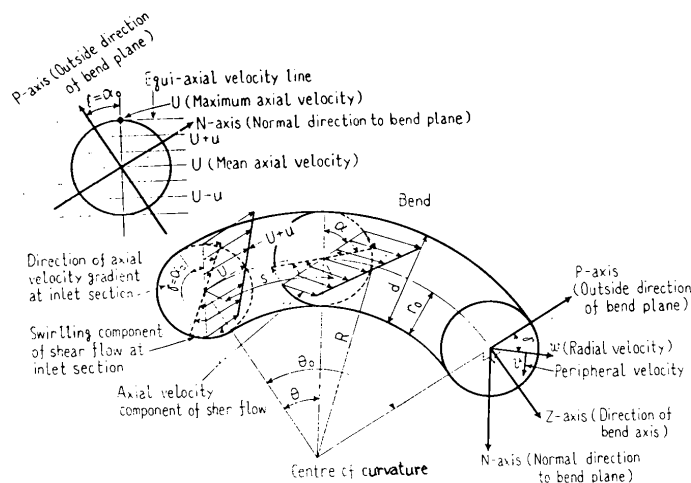 P-axis (Outside direction
of bend plane)
γ=α₀
Equi-axial velocity line
U (Maximum axial velocity)
N-axis (Normal direction to bend plane)
U+u
U (Mean axial velocity)
U-u
Bend
Direction of axial
velocity gradient
at inlet section
Swirlling component
of shear flow at
inlet section
Axial velocity
component of sher flow
γ=α₀
U
U+u
S
α
d
r₀
R
θ₀
θ
Centre of curvature
P-axis
(Outside direction
of bend plane)
γ
w (Radial velocity)
v
Peripheral velocity
Z-axis (Direction of
bend axis)
N-axis (Normal direction
to bend plane)